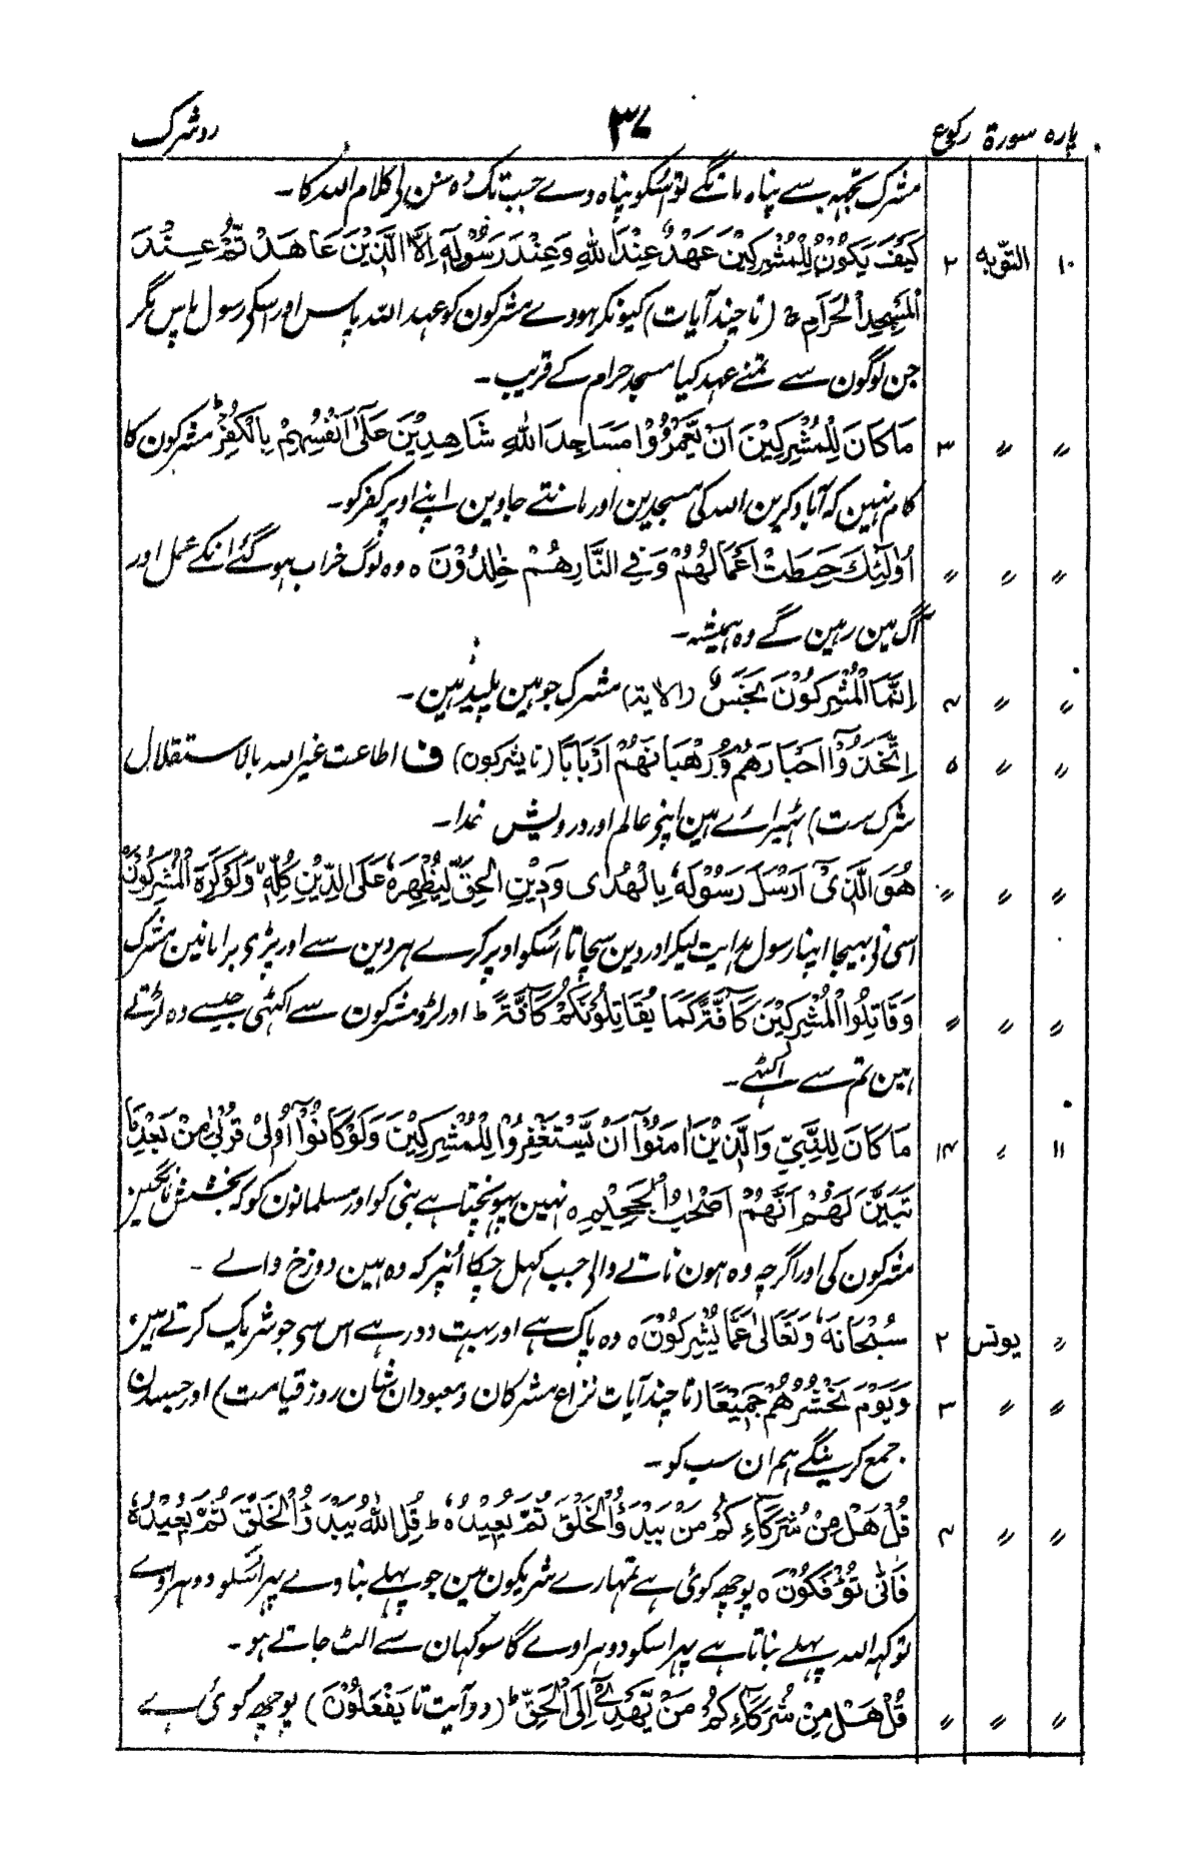 پارہ سورۃ رکوع ۳۷ رد شرک
مشرک تجہہ سے پناہ مانگے تو اسکو پناہ دے جب تک وہ سن لے کلام اللہ کا۔
۱۰ التوبہ ۲ كَيْفَ يَكُوْنُ لِلْمُشْرِكِيْنَ عَهْدٌ عِنْدَ اللهِ وَعِنْدَ رَسُوْلِهٖ اِلَّا الَّذِيْنَ عَاهَدْتُّمْ عِنْدَ
الْمَسْجِدِ الْحَرَامِ ج (تا چند آیات) کیونکر ہووے مشرکون کو عہد اللہ پاس اور اسکے رسول پاس مگر
جن لوگون سے تمنے عہد کیا مسجد حرام کے قریب۔
〃 〃 ۳ مَا كَانَ لِلْمُشْرِكِيْنَ اَنْ يَّعْمُرُوْا مَسَاجِدَ اللهِ شَاهِدِيْنَ عَلٰٓى اَنْفُسِهِمْ بِالْكُفْرِ ط مشرکون کا
کام نہین کہ آباد کرین اللہ کی مسجدین اور مانتے جاوین اپنے اوپر کفر کو۔
〃 〃 〃 اُولٰٓئِكَ حَبِطَتْ اَعْمَالُهُمْ وَفِي النَّارِ هُمْ خٰلِدُوْنَ ہ وہ لوگ خراب ہو گئے انکے عمل اور
آگ مین رہین گے وہ ہمیشہ۔
〃 〃 ۴ اِنَّمَا الْمُشْرِكُوْنَ نَجَسٌ (الایۃ) مشرک جو ہین پلید ہین۔
〃 〃 ۵ اِتَّخَذُوْٓا اَحْبَارَهُمْ وَرُهْبَانَهُمْ اَرْبَابًا (تا یشرکون) ف اطاعت غیر اللہ بالاستقلال
شرک ست) ٹہیرائے ہین اپنے عالم اور درویش خدا۔
〃 〃 〃 هُوَ الَّذِيْٓ اَرْسَلَ رَسُوْلَهٗ بِالْهُدٰى وَدِيْنِ الْحَقِّ لِيُظْهِرَهٗ عَلَى الدِّيْنِ كُلِّهٖ وَلَوْ كَرِهَ الْمُشْرِكُوْنَ
اسی نے بہیجا اپنا رسول ہدایت لیکر اور دین سچا تا اسکو اوپر کرے ہر دین سے اور پڑی برا مانین مشرک
〃 〃 〃 وَقَاتِلُوا الْمُشْرِكِيْنَ كَآفَّةً كَمَا يُقَاتِلُوْنَكُمْ كَآفَّةً ط اور لڑو مشرکون سے اکٹہے جیسے وہ لڑتے
ہین تم سے اکٹہے۔
۱۱ 〃 ۱۴ مَا كَانَ لِلنَّبِيِّ وَالَّذِيْنَ اٰمَنُوْٓا اَنْ يَّسْتَغْفِرُوْا لِلْمُشْرِكِيْنَ وَلَوْ كَانُوْٓا اُولِيْ قُرْبٰى مِنْ بَعْدِ مَا
تَبَيَّنَ لَهُمْ اَنَّهُمْ اَصْحٰبُ الْجَحِيْمِ ہ نہین پہونچتا ہے نبی کو اور مسلمانون کو کہ بخشش مانگین
مشرکون کی اور اگرچہ وہ ہون ناتے والے جب کہل چکا اُنپر کہ وہ ہین دوزخ والے۔
〃 یونس ۲ سُبْحَانَهٗ وَتَعَالٰى عَمَّا يُشْرِكُوْنَ ہ وہ پاک ہے اور بہت دور ہے اس سے جو شریک کرتے ہین
〃 〃 ۳ وَيَوْمَ نَحْشُرُهُمْ جَمِيْعًا (تا چند آیات نزاع مشرکان و معبودان شان روز قیامت) اور جسدن
جمع کرینگے ہم ان سب کو۔
〃 〃 ۴ قُلْ هَلْ مِنْ شُرَكَآءِكُمْ مَنْ يَبْدَؤُا الْخَلْقَ ثُمَّ يُعِيْدُهٗ ط قُلِ اللهُ يَبْدَؤُا الْخَلْقَ ثُمَّ يُعِيْدُهٗ
فَاَنّٰى تُؤْفَكُوْنَ ہ پوچھ کوئی ہے تمہارے شریکون مین جو پہلے بناوے پہر اسکو دوہراوے
تو کہہ اللہ پہلے بناتا ہے پہر اسکو دوہراوے گا سو کہان سے الٹ جاتے ہو۔
〃 〃 〃 قُلْ هَلْ مِنْ شُرَكَآءِكُمْ مَنْ يَّهْدِيْٓ اِلَى الْحَقِّ ط (دو آیت تا يَفْعَلُوْنَ) پوچھ کوئی ہے